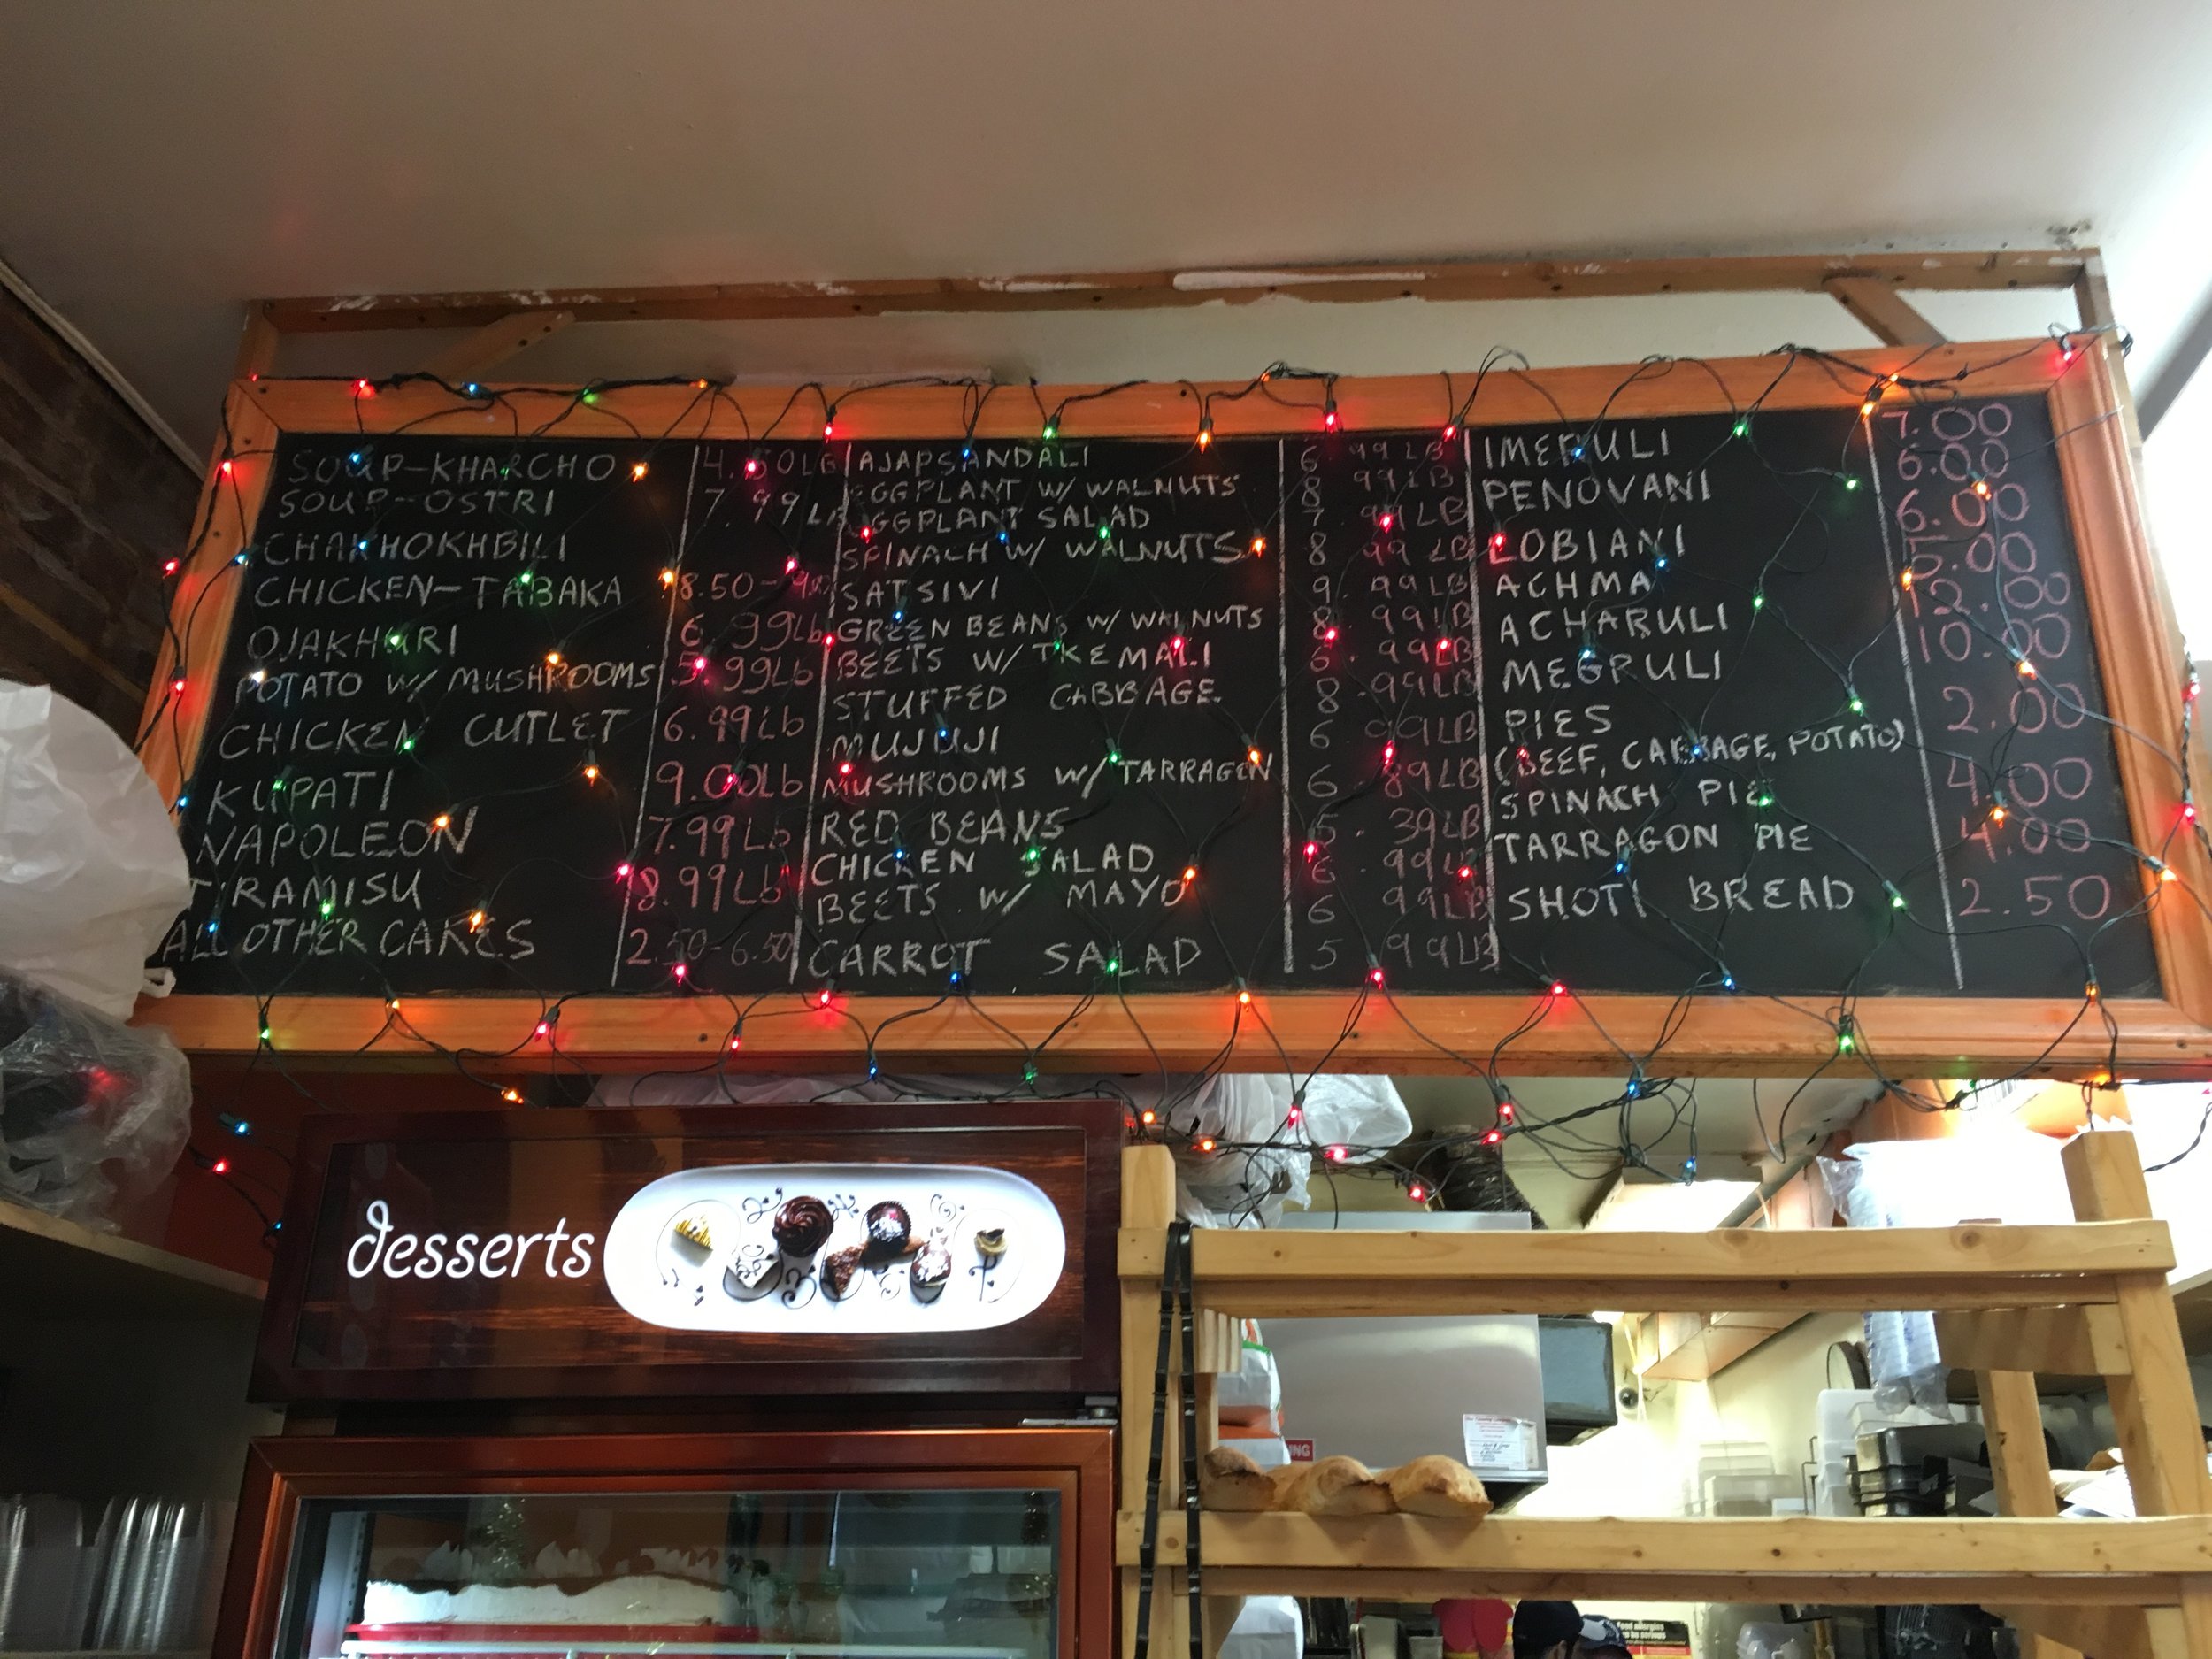 SOUP-KHARCHO
SOUP-OSTRI 7.99
CHAKHOKHBILI
CHICKEN-TABAKA 8.50-
OJAKHURI 6.99Lb
POTATO W/ MUSHROOMS 5.99Lb
CHICKEN CUTLET 6.99Lb
KUPATI 9.00Lb
NAPOLEON 7.99Lb
TIRAMISU 8.99Lb
ALL OTHER CAKES 2.50-6.50
AJAPSANDALI 6.99LB
EGGPLANT W/ WALNUTS 8.99LB
EGGPLANT SALAD 7.99LB
SPINACH W/ WALNUTS 8.99LB
SATSIVI 9.99LB
GREEN BEANS W/ WALNUTS 8.99LB
BEETS W/ TKEMALI 6.99LB
STUFFED CABBAGE 8.99LB
MUJUJI 6.99LB
MUSHROOMS W/ TARRAGEN 6.89LB
RED BEANS 5.39LB
CHICKEN SALAD 6.99LB
BEETS W/ MAYO 6.99LB
CARROT SALAD 5.99LB
IMERULI 7.00
PENOVANI 6.00
LOBIANI 6.00
ACHMA 5.00
ACHARULI 12.00
MEGRULI 10.00
PIES 2.00
(BEEF, CABBAGE, POTATO)
SPINACH PIE 4.00
TARRAGON PIE 4.00
SHOTI BREAD 2.50
desserts